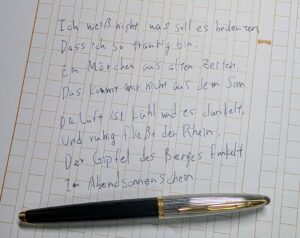 Ich weiß nicht was soll es bedeuten,
Dass ich so traurig bin;
Ein Märchen aus alten Zeiten,
Das kommt mir nicht aus dem Sinn
Die Luft ist kühl und es dunkelt,
Und ruhig fließt der Rhein,
Der Gipfel des Berges funkelt
Im Abendsonnenschein